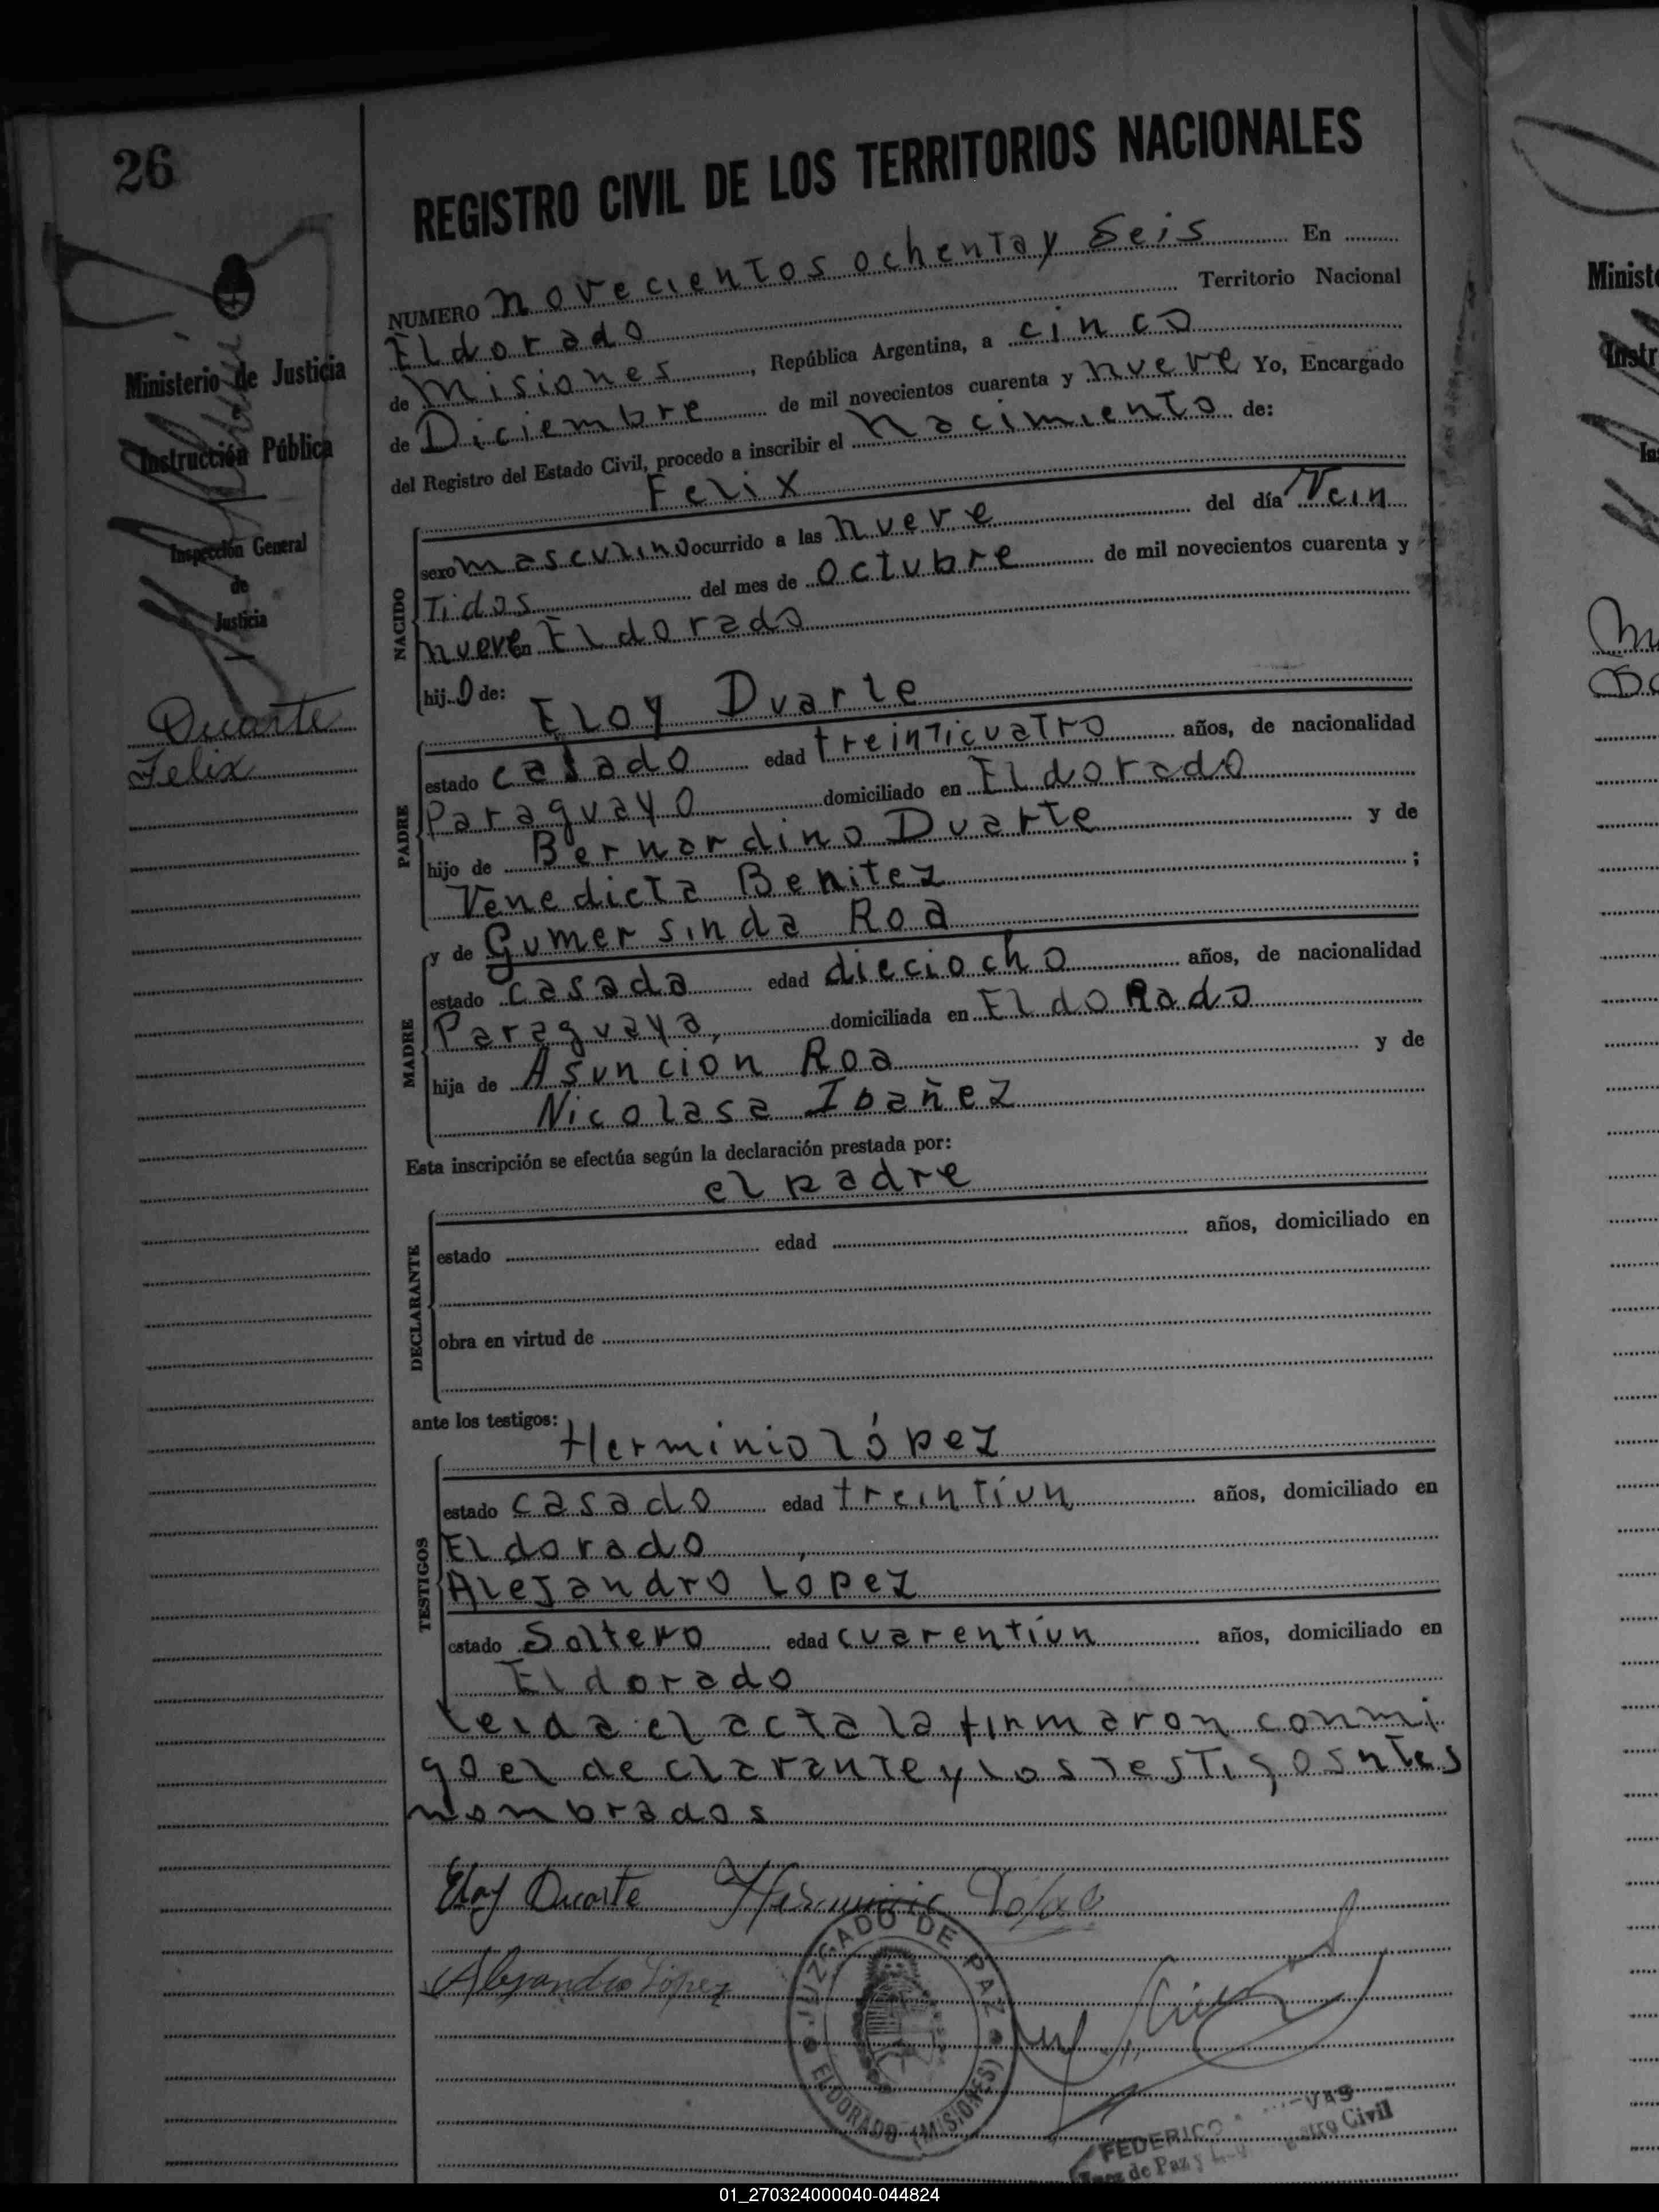 26
REGISTRO CIVIL DE LOS TERRITORIOS NACIONALES
NUMERO novecientos ochentay seis En
Eldorado Territorio Nacional
de Misiones, República Argentina, a cinco
de Diciembre de mil novecientos cuarenta y nueve Yo, Encargado
del Registro del Estado Civil, procedo a inscribir el nacimiento de:
Felix
sexo masculino ocurrido a las nueve del día Vein
Tidos del mes de octubre de mil novecientos cuarenta y
nueve en Eldorado
hijo de:
Eloy Duarte
estado casado edad treinticuatro años, de nacionalidad
Paraguayo domiciliado en Eldorado
hijo de Bernardino Duarte y de
Venedicta Benitez ;
y de Gumersinda Roa
estado casada edad dieciocho años, de nacionalidad
Paraguaya, domiciliada en Eldorado
hija de Asuncion Roa y de
Nicolasa Ibañez
Esta inscripción se efectúa según la declaración prestada por:
el padre
estado edad años, domiciliado en
obra en virtud de
ante los testigos:
Herminio lópez
estado casado edad treintiun años, domiciliado en
Eldorado
Alejandro Lopez
estado Soltero edad cuarentiún años, domiciliado en
Eldorado
leida el acta la firmaron conmi
go el declarante y los testigos ntes
nombrados
Eloy Duarte Herminio López
Alejandro López
JUZGADO DE PAZ
ELDORADO (MISIONES)
FEDERICO
Juez de Paz y Civil
Ministerio de Justicia
Instrucción Pública
Inspección General
de
Justicia
Duarte
Felix
NACIDO
PADRE
MADRE
DECLARANTE
TESTIGOS
01_270324000040-044824